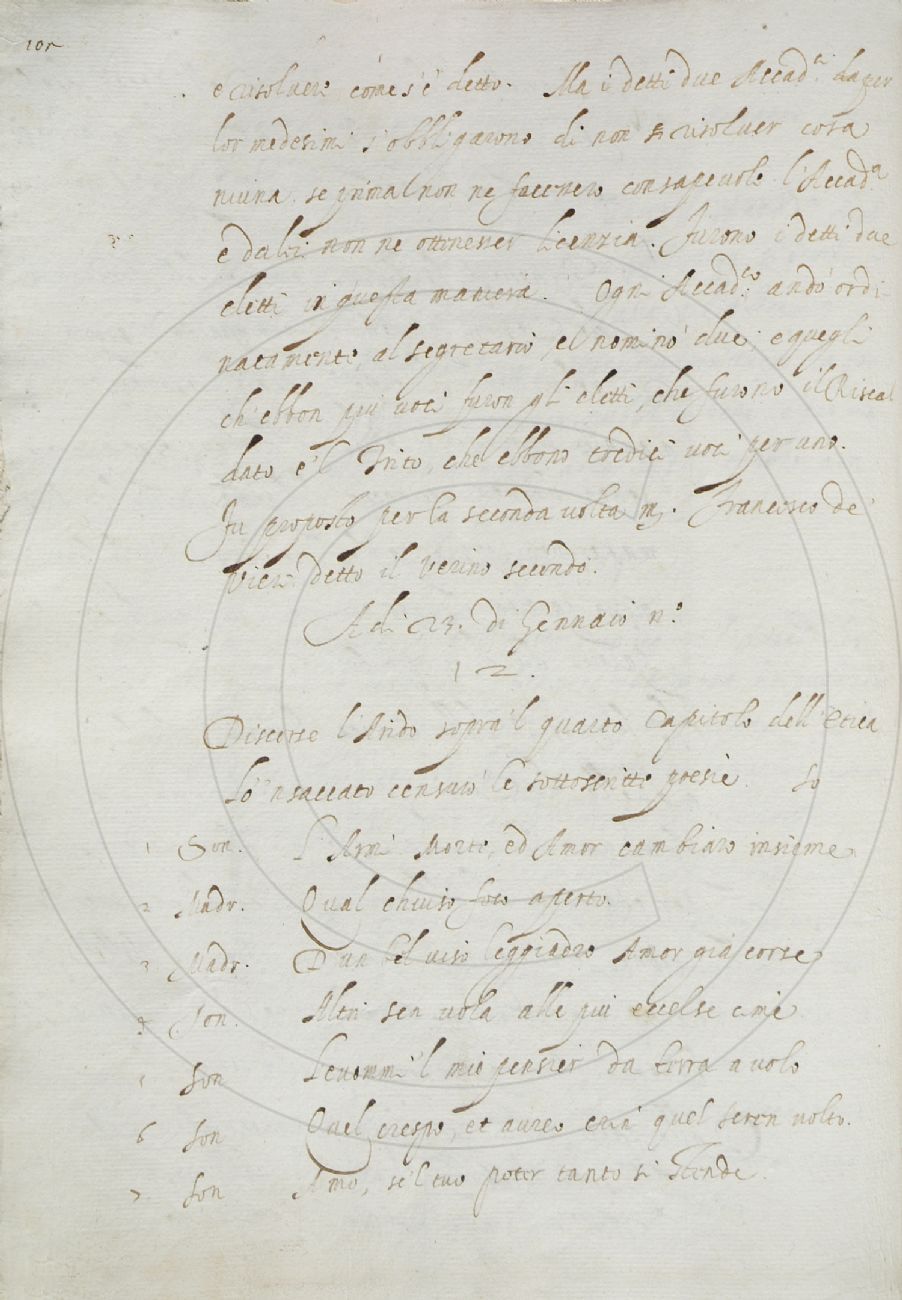 101
e risolvere come s'è detto. Ma i detti due Accad.ci da per
lor medesimi s'obbligarono di non risolver cosa
niuna se prima non ne facevero consapevole l'Accad.a
e da lei non ne ottenesser licenzia. Furono i detti due
eletti in questa maniera. Ogni Accad.co andò ordi
natamente al segretario, el nominò due: e quegli
ch'ebbon più voci furon gli eletti, che furono il Riscal
dato e'l Trito, che ebbono tredici voci per uno.
Fu proposto per la seconda volta m. Francesco de
Vieri detto il Verino secondo.
A di 23. di Gennaio n.o
12.
Discorse l'Arido sopra'l quarto Capitolo dell'Etica
Lo'nsaccato censurò le sottoscritte poesie. Lo
1 Son. L'Armi Morte, ed Amor cambiaro insieme
2 Madr. Qual chiuso foco aperto.
3 Madr. D'un bel viso leggiadro Amor già corse
Son. Altri sen vola alle più eccelse cime
Son Levommi'l mio pensier da terra a volo
6 Son Quel crespo, et aureo crin quel seren volto.
7 Son Amor, se'l tuo poter tanto si stende.